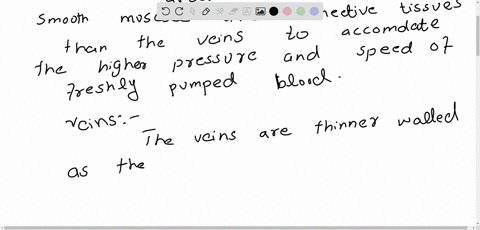 Smooth tissues
than the veins to accomdate
the higher pressure and speed of
freshly pumped blood.
veins:-
The veins are thinner walled
as the